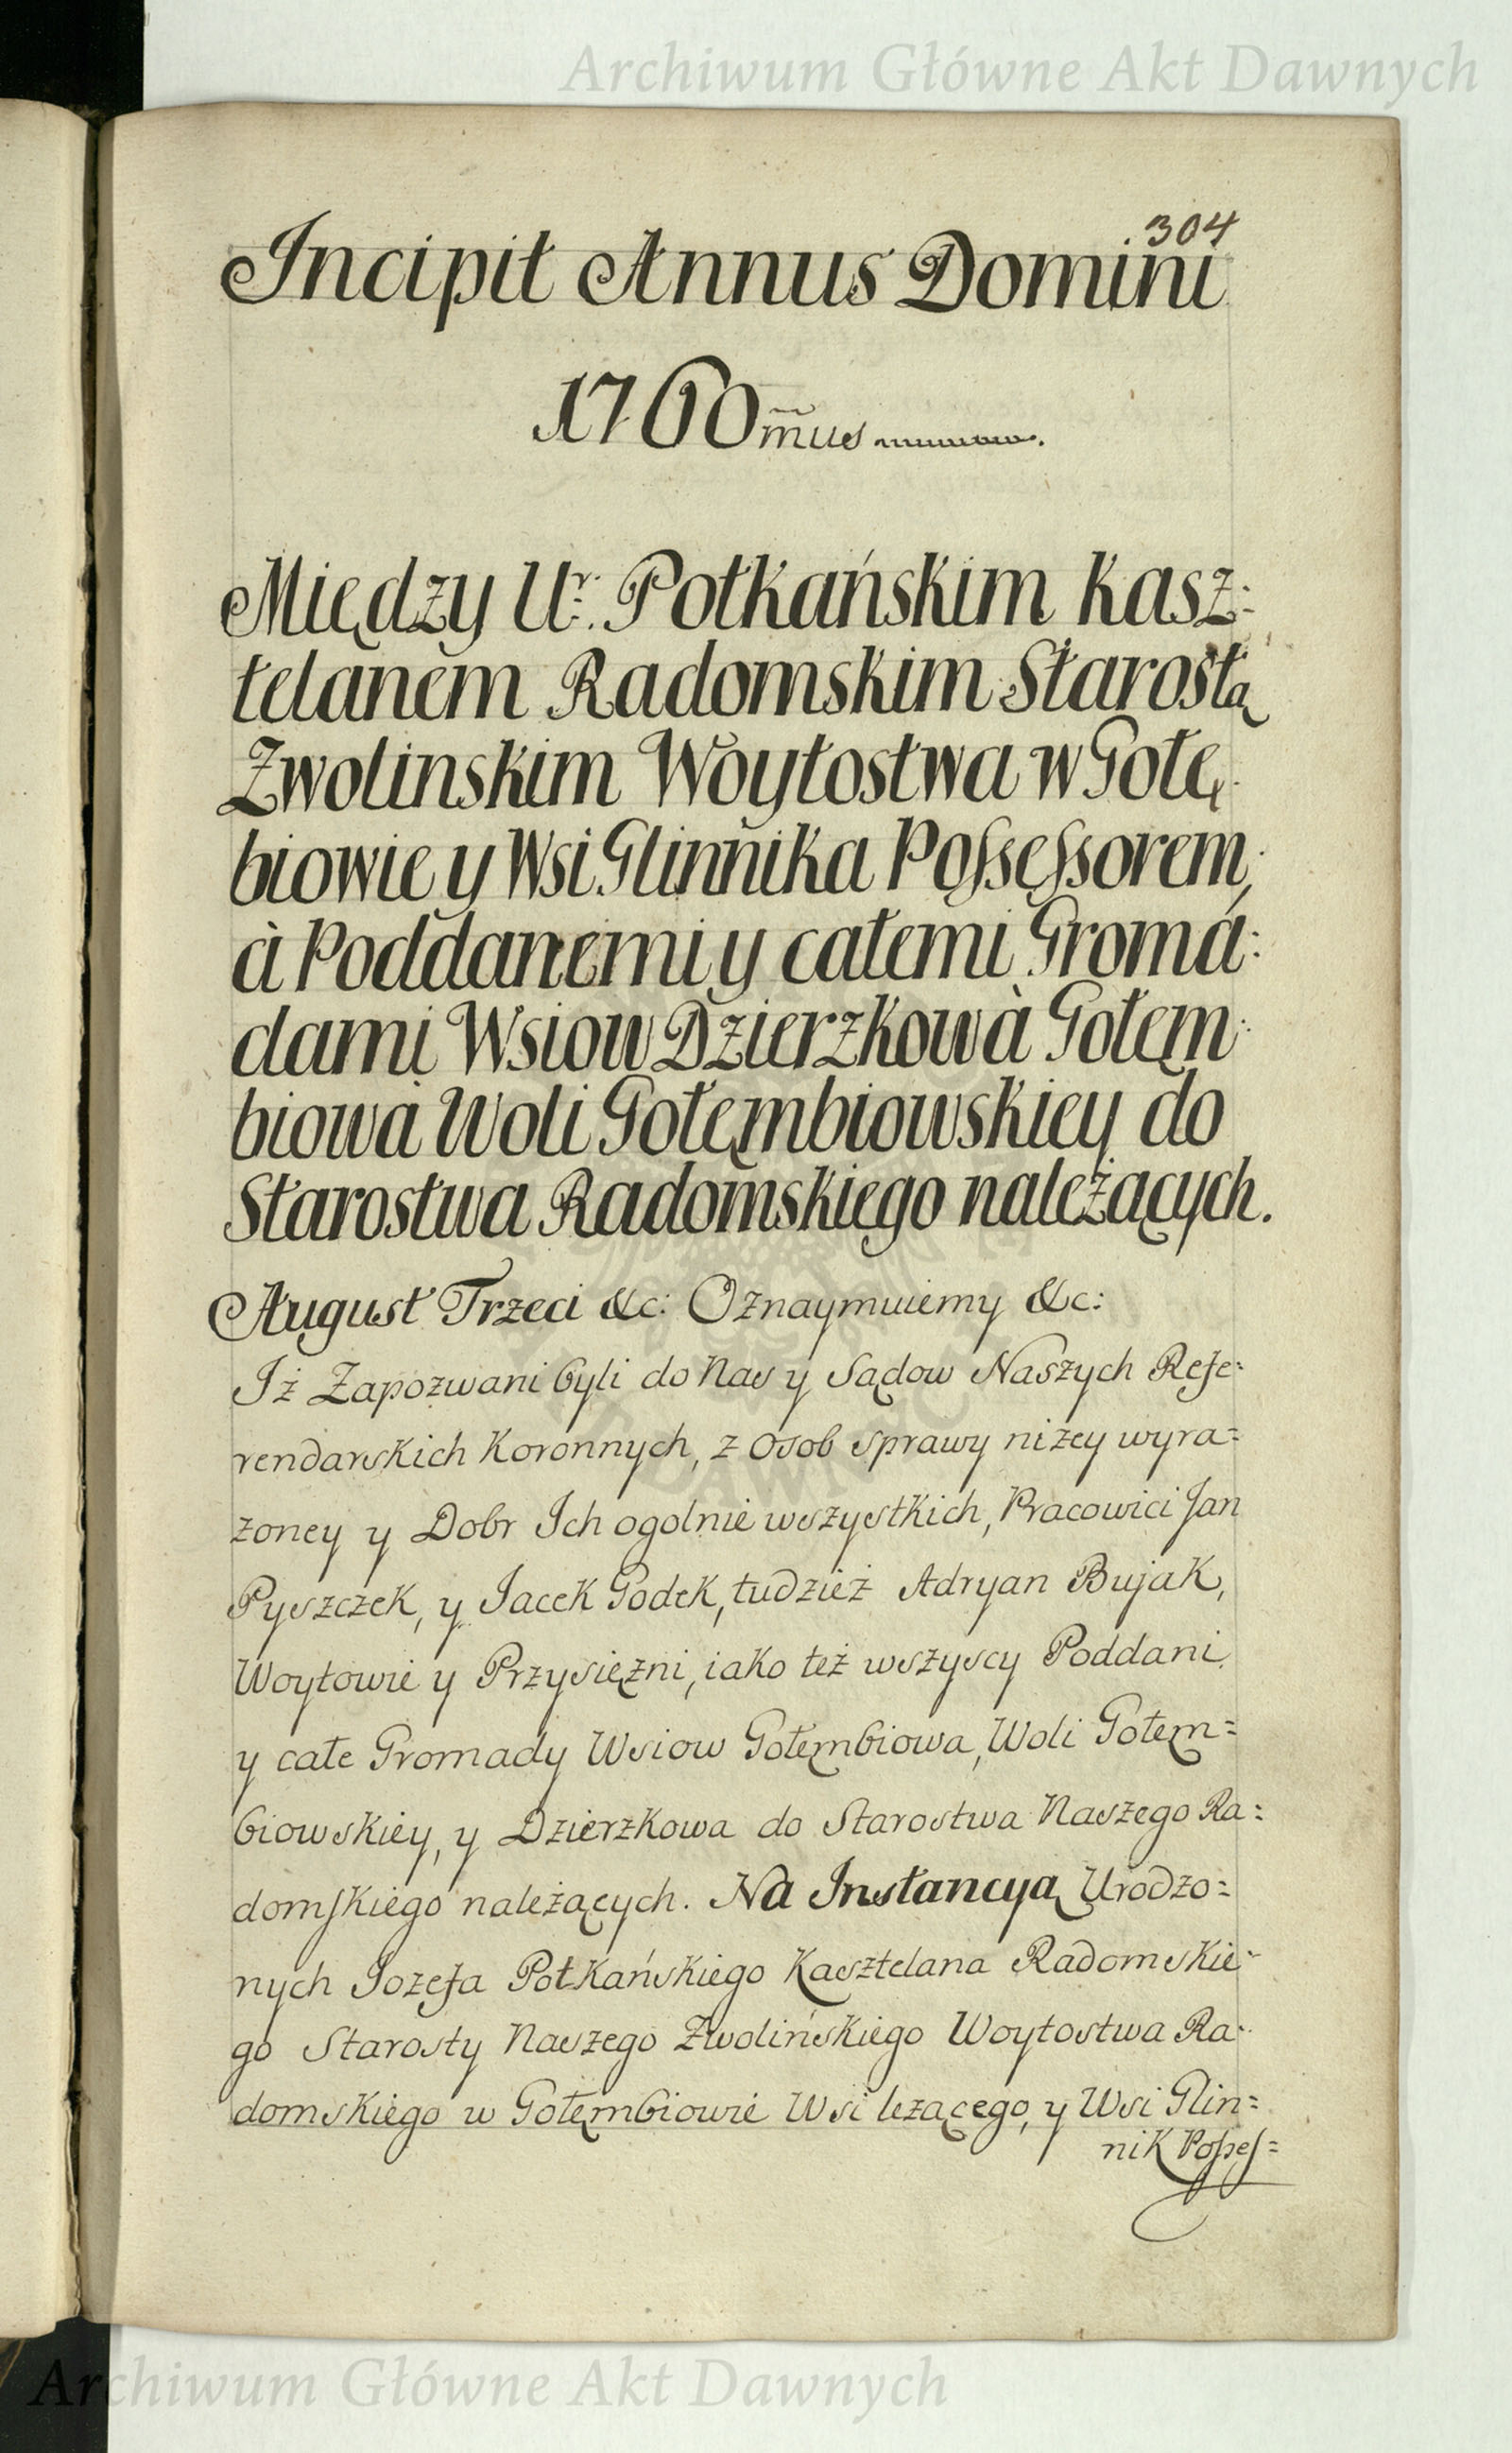 Archiwum Główne Akt Dawnych
304
Incipit Annus Domini
1760mus
Między Ur: Potkańskim Kasz:
telanem Radomskim Starostą
Zwolinskim Woytostwa w Gołę
biowie y Wsi Glinnika Possessorem,
à Poddanemi y całemi Groma:
dami Wsiow Dzierzkowà Gołem:
biowa Woli Gołembiowskiey do
Starostwa Radomskiego należących.
August Trzeci &c: Oznaymuiemy &c:
Iż Zapozwani byli do Nas y Sądow Naszych Refe:
rendarskich Koronnych, z Osob sprawy niżey wyra=
żoney y Dobr Ich ogolnie wszystkich, Pracowici Jan
Pyszczek, y Jacek Godek, tudzież Adryan Bujak,
Woytowie y Przysiężni, iako też wszyscy Poddani
y całe Gromady Wsiow Gołembiowa, Woli Gołem=
biowskiey, y Dzierzkowa do Starostwa Naszego Ra=
domskiego należących. Na Instancyą Urodzo=
nych Jozefa Potkańskiego Kasztelana Radomskie=
go Starosty Naszego Zwolińskiego Woytostwa Ra=
domskiego w Gołembiowie Wsi leżącego, y Wsi Glin=
nik Posses=
Archiwum Główne Akt Dawnych